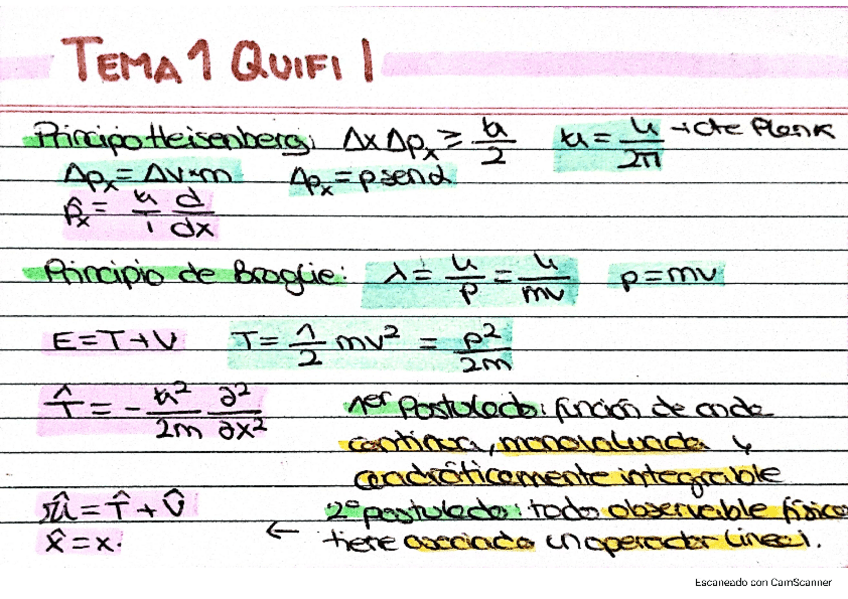 TEMA 1 QUIFI I
Principo Heisenberg: Δx Δpₓ ≥ ħ/2 ħ = h/2π → cte Plank
Δpₓ = Δv·m Δpₓ = p senα
p̂ₓ = ħ/i d/dx
Principio de Broglie: λ = h/p = h/mv p = mv
E = T + V T = 1/2 mv² = p²/2m
T̂ = - ħ²/2m ∂²/∂x² 1er Postulado: función de onda
continua, monovaluada y
cuadráticamente integrable
Ĥ = T̂ + V̂ 2º postulado: todo observable físico
x̂ = x. ← tiene asociado un operador lineal.
Escaneado con CamScanner